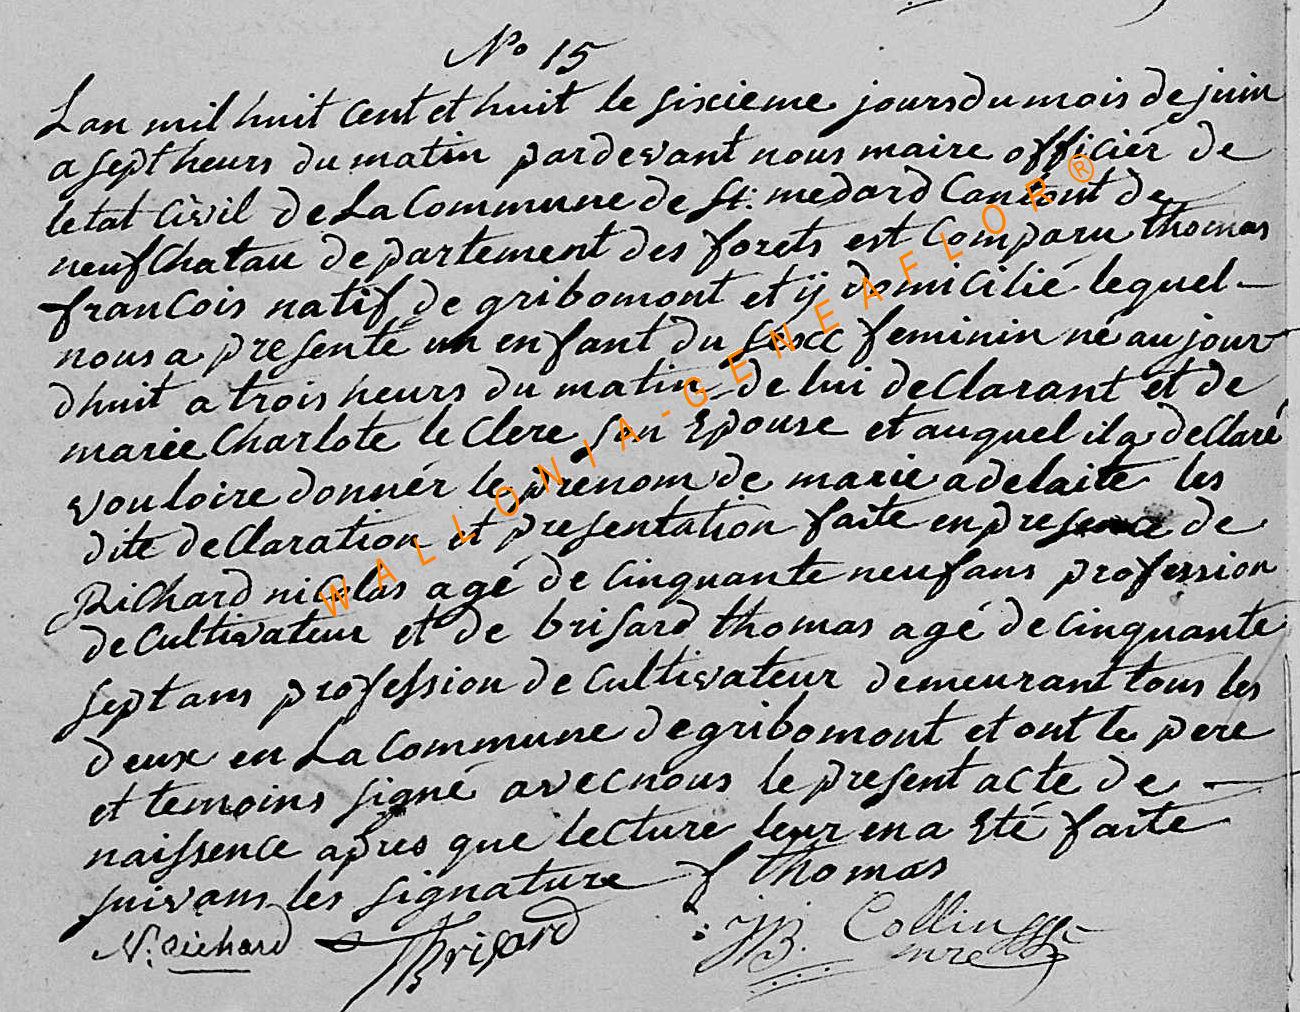 No 15
Lan mil huit cent et huit le sixieme jours du mois de juin
a sept heurs du matin pardevant nous maire officiér de
letat civil de La Commune de St. medard Cantont de
neufchatau departement des forets est Comparu thomas
francois natif de gribomont et ÿ domicilié lequel -
nous a presenté un enfant du sexe feminin né aujour
dhuit a trois heurs du matin de lui declarant et de
marie Charlote le Clere son Epouse et auquel il a declaré
vouloire donnér le prénom de marie adelaite les
dite declaration et presentation faite en presence de
Richard nicolas agé de cinquante neuf ans profession
de cultivateur et de brisard thomas agé de cinquante
sept ans profession de cultivateur demeurant tous les
deux en La Commune de gribomont et ont le pere
et temoins signé avec nous le present acte de -
naissence apres que lecture leur en a eté faite
suivans les signature f thomas
N: Richard TBrisard JB. Collin
mre
WALLONIA-GENEAFLOR®